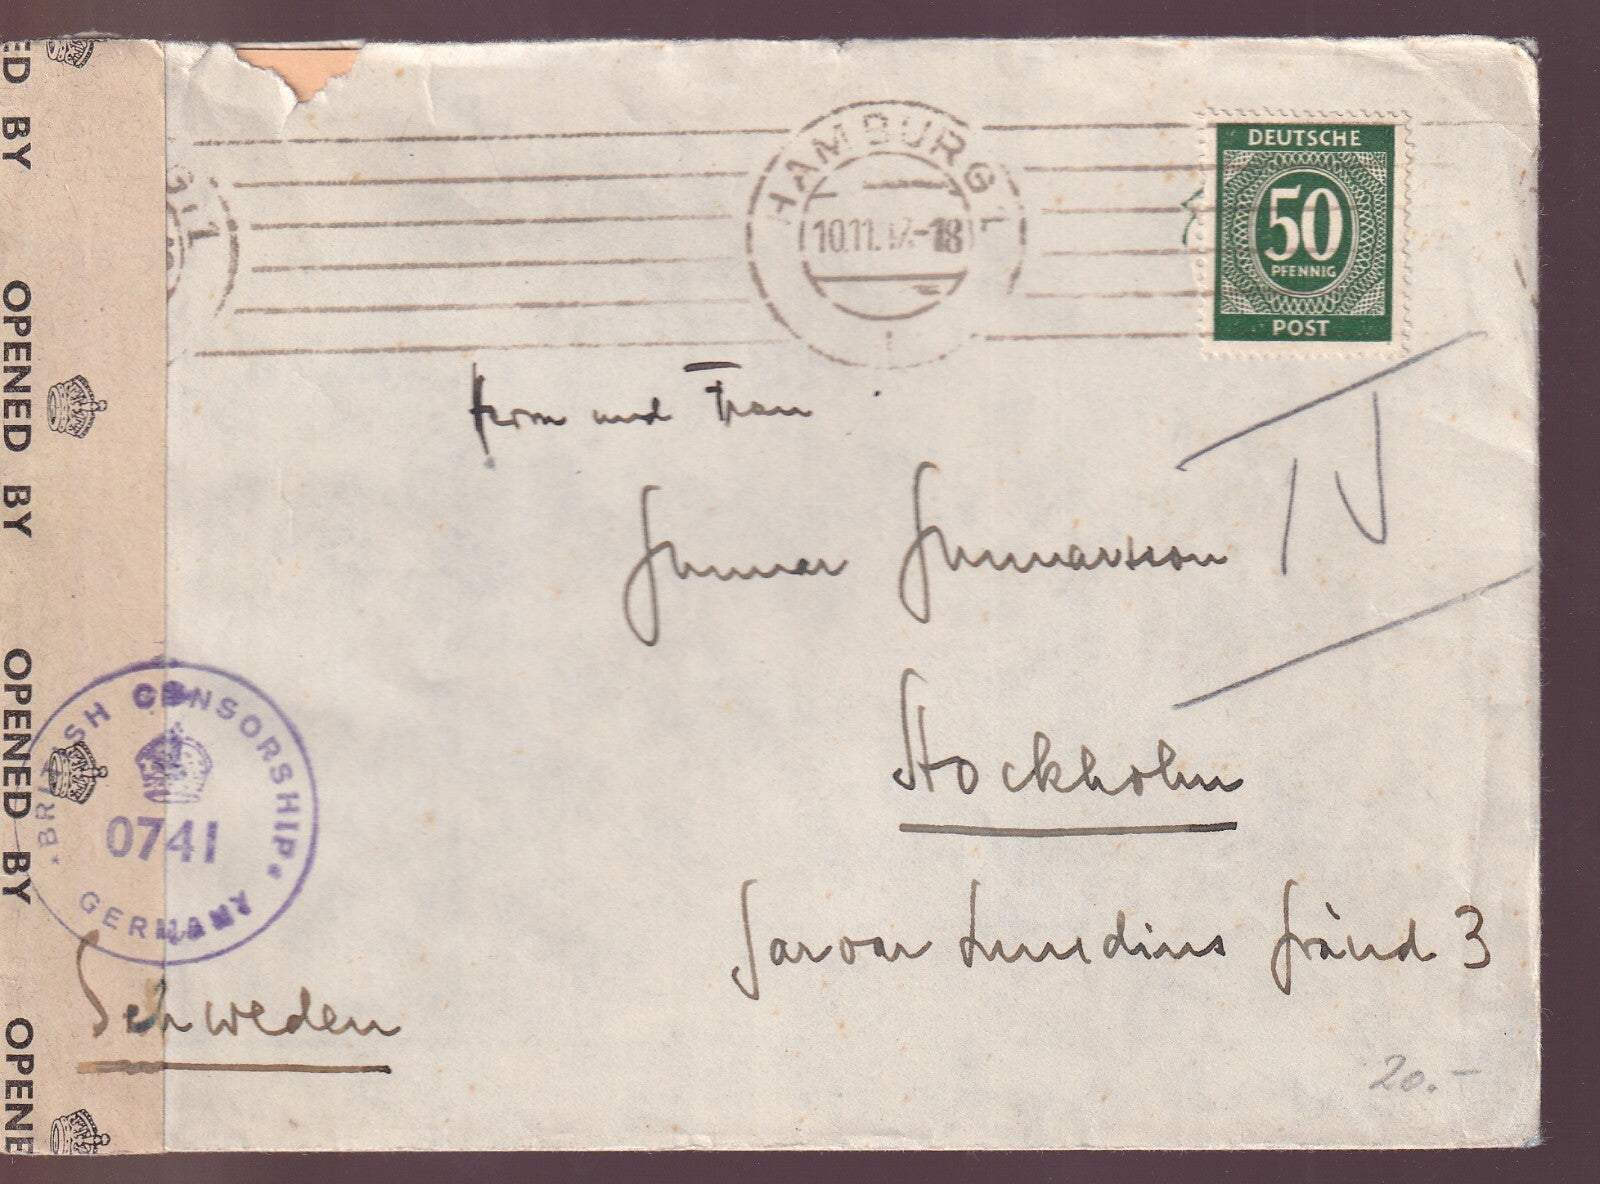 ED BY
OPENED BY
OPENED BY
OPENE
HAMBURG 1
10.11.47-18
DEUTSCHE
50
PFENNIG
POST
Herrn und Frau
Gunnar Gunnarsson
IV
Stockholm
Ivar Lundins Gränd 3
BRITISH CENSORSHIP
0741
GERMANY
Schweden
20.-